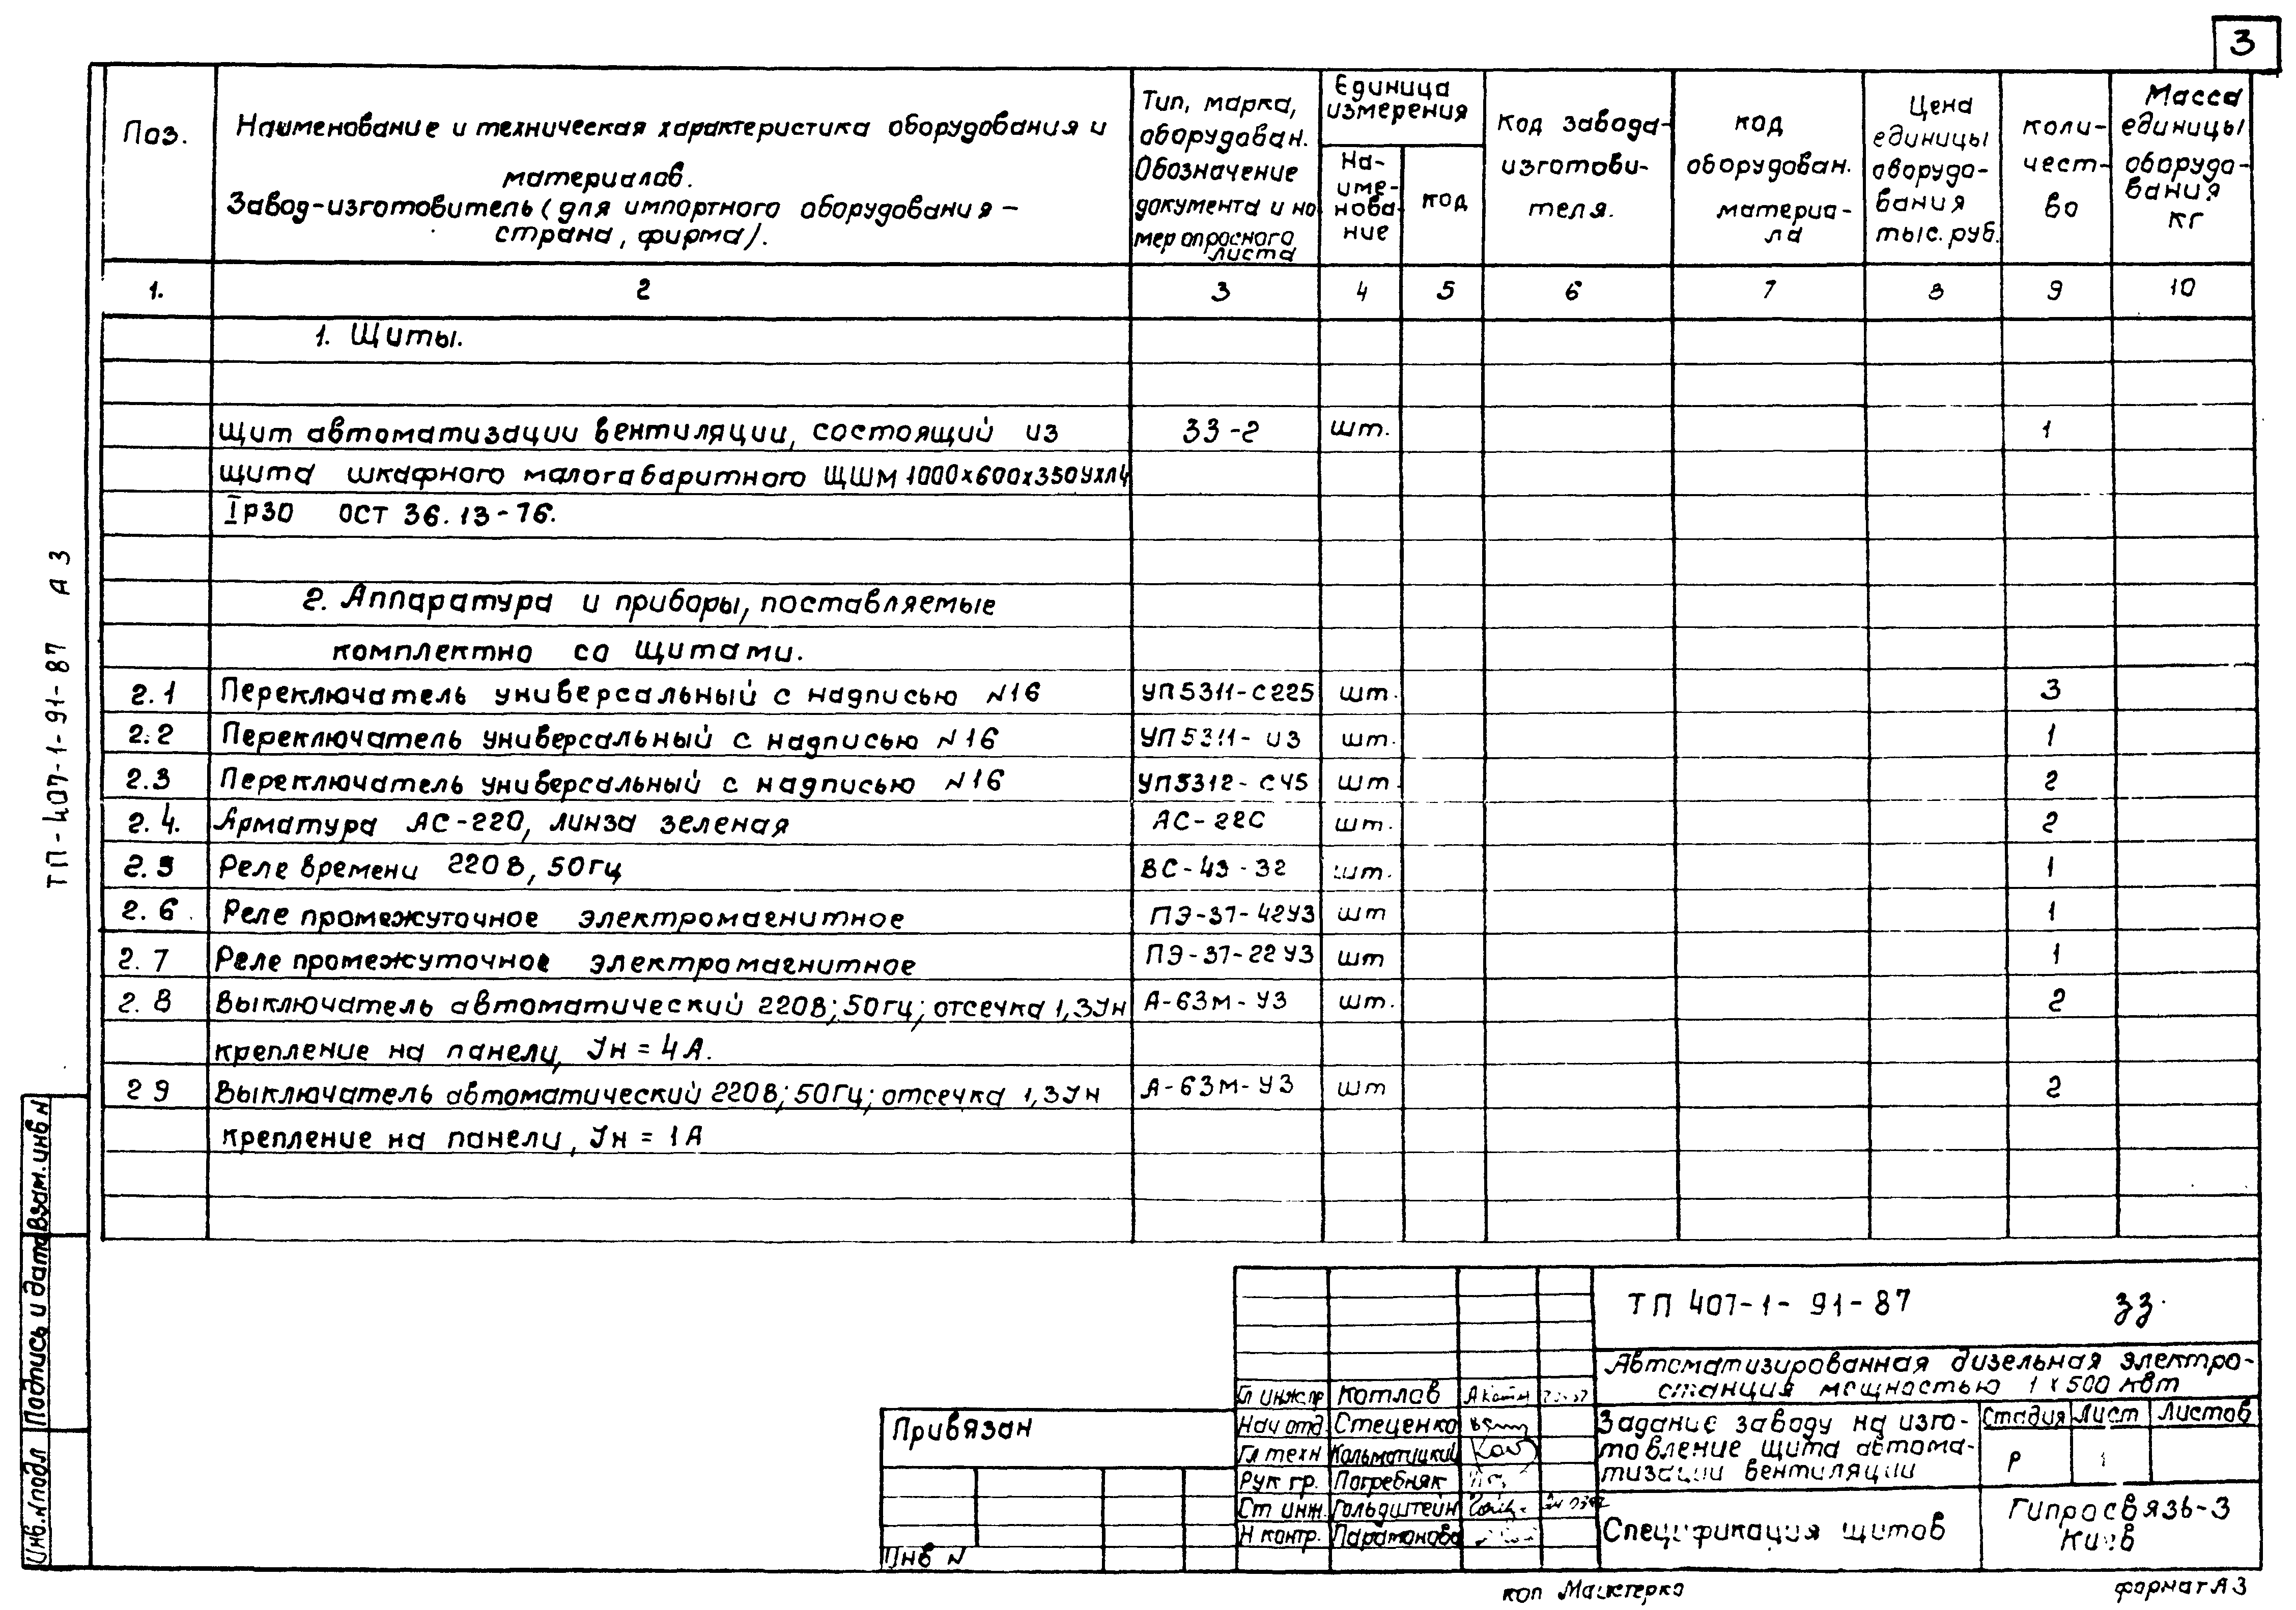 3
Поз.
Наименование и техническая характеристика оборудования и
материалов.
Завод-изготовитель (для импортного оборудования –
страна, фирма).
Тип, марка,
оборудован.
Обозначение
документа и но
мер опросного
листа
Единица
измерения
На-
име-
нова-
ние
код
код завода-
изготови-
теля.
код
оборудован.
материа-
ла
Цена
единицы
оборудо-
вания
тыс. руб.
коли-
чест-
во
Масса
единицы
оборудо-
вания
кг
1. 2 3 4 5 6 7 8 9 10
1. Щиты.
Щит автоматизации вентиляции, состоящий из 33-2 шт. 1
щита шкафного малогабаритного ЩШМ 1000х600х350УХЛ4
IР30 ОСТ 36.13-76.
2. Аппаратура и приборы, поставляемые
комплектно со щитами.
2.1 Переключатель универсальный с надписью N16 УП5311-С225 шт. 3
2.2 Переключатель универсальный с надписью N16 УП5311-И3 шт. 1
2.3 Переключатель универсальный с надписью N16 УП5312-С45 шт. 2
2.4. Арматура АС-220, линза зеленая АС-220 шт. 2
2.5 Реле времени 220В, 50гц ВС-43-32 шт. 1
2.6. Реле промежуточное электромагнитное ПЭ-37-42У3 шт 1
2.7 Реле промежуточное электромагнитное ПЭ-37-22У3 шт 1
2.8 Выключатель автоматический 220В; 50гц; отсечка 1,3Јн А-63М-У3 шт. 2
крепление на панели, Јн = 4А.
2 9 Выключатель автоматический 220В; 50Гц; отсечка 1,3Јн А-63М-У3 шт 2
крепление на панели, Јн = 1А
ТП-407-1-91-87 А3
Инв.Nподл
Подпись и дата
Взам.инв N
Привязан
Инв N
Гл инж.пр Котлов
Нач отд. Стеценко
Гл техн Кольматицкий
Рук гр. Погребняк
Ст инж. Гольдштейн
Н контр. Парамонова
ТП 407-1-91-87 ЗЗ.
Автоматизированная дизельная электро-
станция мощностью 1х500 квт
Задание заводу на изго-
товление щита автома-
тизации вентиляции
Стадия Лист Листов
Р 1
Спецификация щитов
Гипросвязь-3
Киев
коп Майстерко
формат А3